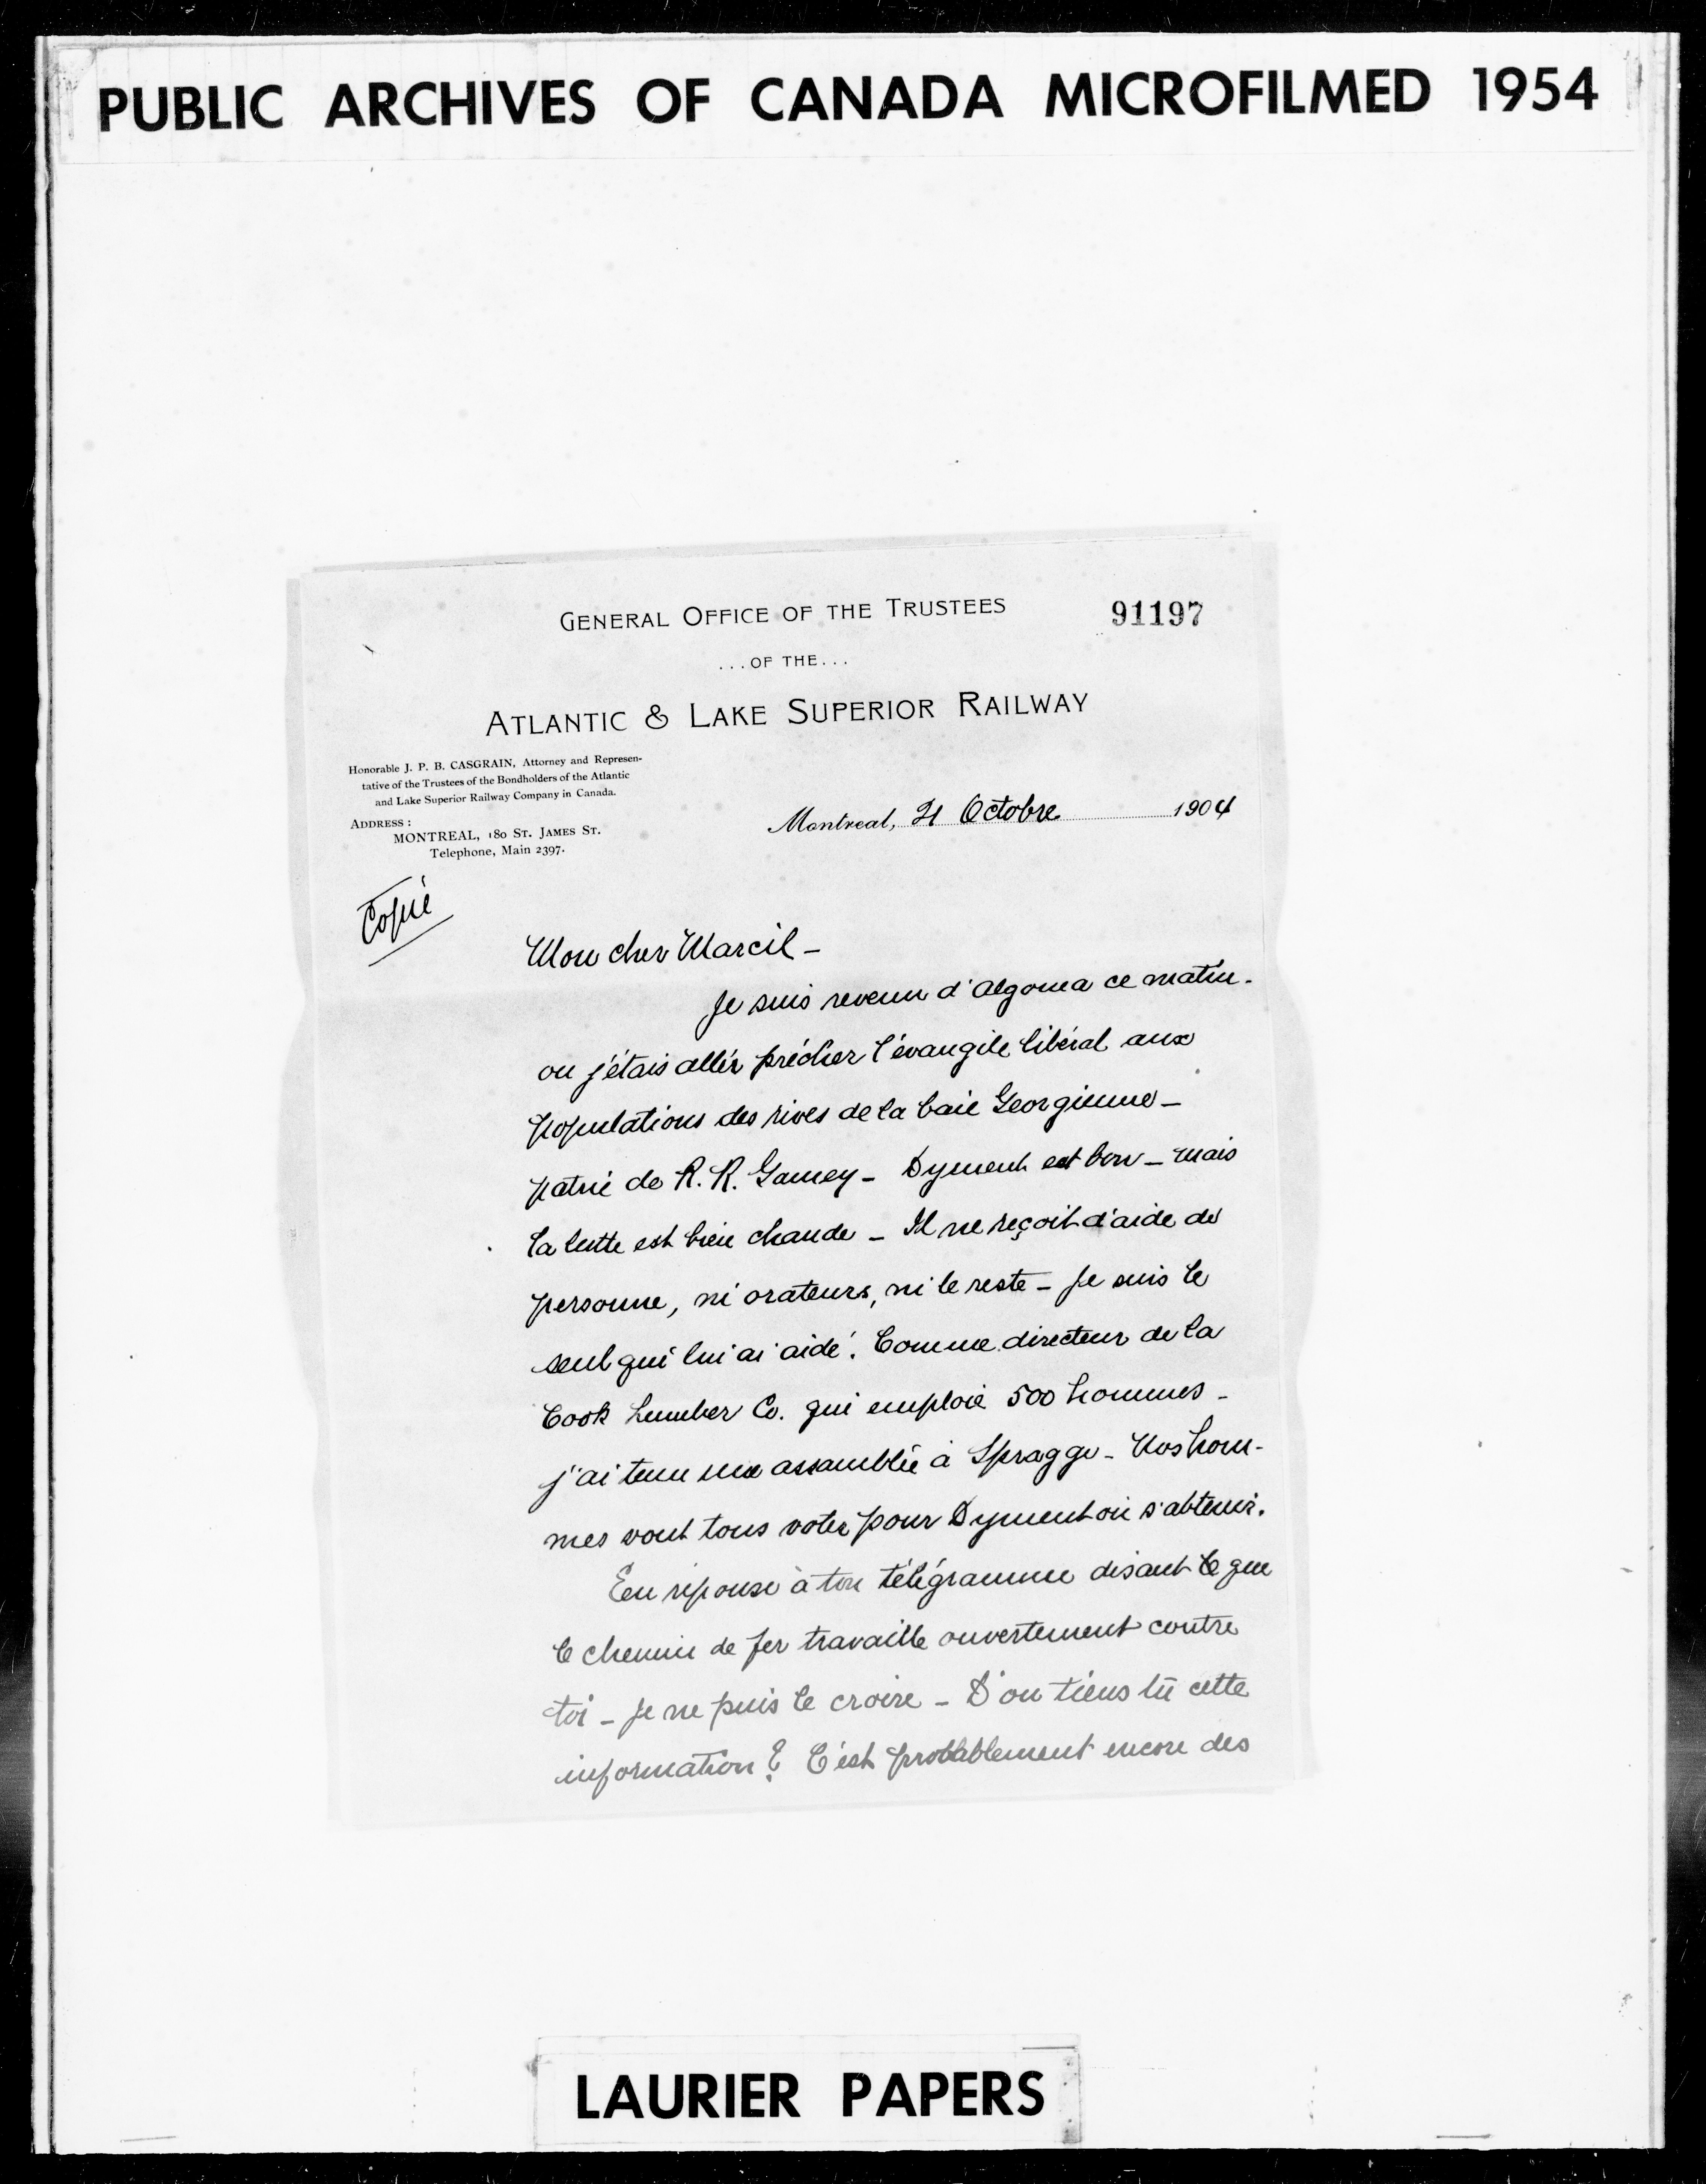 PUBLIC ARCHIVES OF CANADA MICROFILMED 1954
GENERAL OFFICE OF THE TRUSTEES
91197
...OF THE...
ATLANTIC & LAKE SUPERIOR RAILWAY
Honorable J. P. B. CASGRAIN, Attorney and Represen-
tative of the Trustees of the Bondholders of the Atlantic
and Lake Superior Railway Company in Canada.
ADDRESS :
MONTREAL, 180 ST. JAMES ST.
Telephone, Main 2397.
Montreal, 21 Octobre 1904
Copié
Mon cher Marcil –
Je suis revenu d'Algoma ce matin.
ou j'étais aller prêcher l'évangile libéral aux
populations des rives de la baie Georgienne –
patrie de R. R. Gamey – Dyment est bon – mais
la lutte est bien chaude – Il ne reçoit d'aide de
personne, ni orateurs, ni le reste – Je suis le
seul qui lui ai aidé. Comme directeur de la
Cook Lumber Co. qui emploie 500 hommes –
j'ai tenu une assemblée à Spragge – Nos hom-
mes vont tous voter pour Dyment ou s'abtenir.
En réponse à ton télégramme disant que
le chemin de fer travaille ouvertement contre
toi – Je ne puis le croire – D'ou tiens tu cette
information ? C'est probablement encore des
LAURIER PAPERS